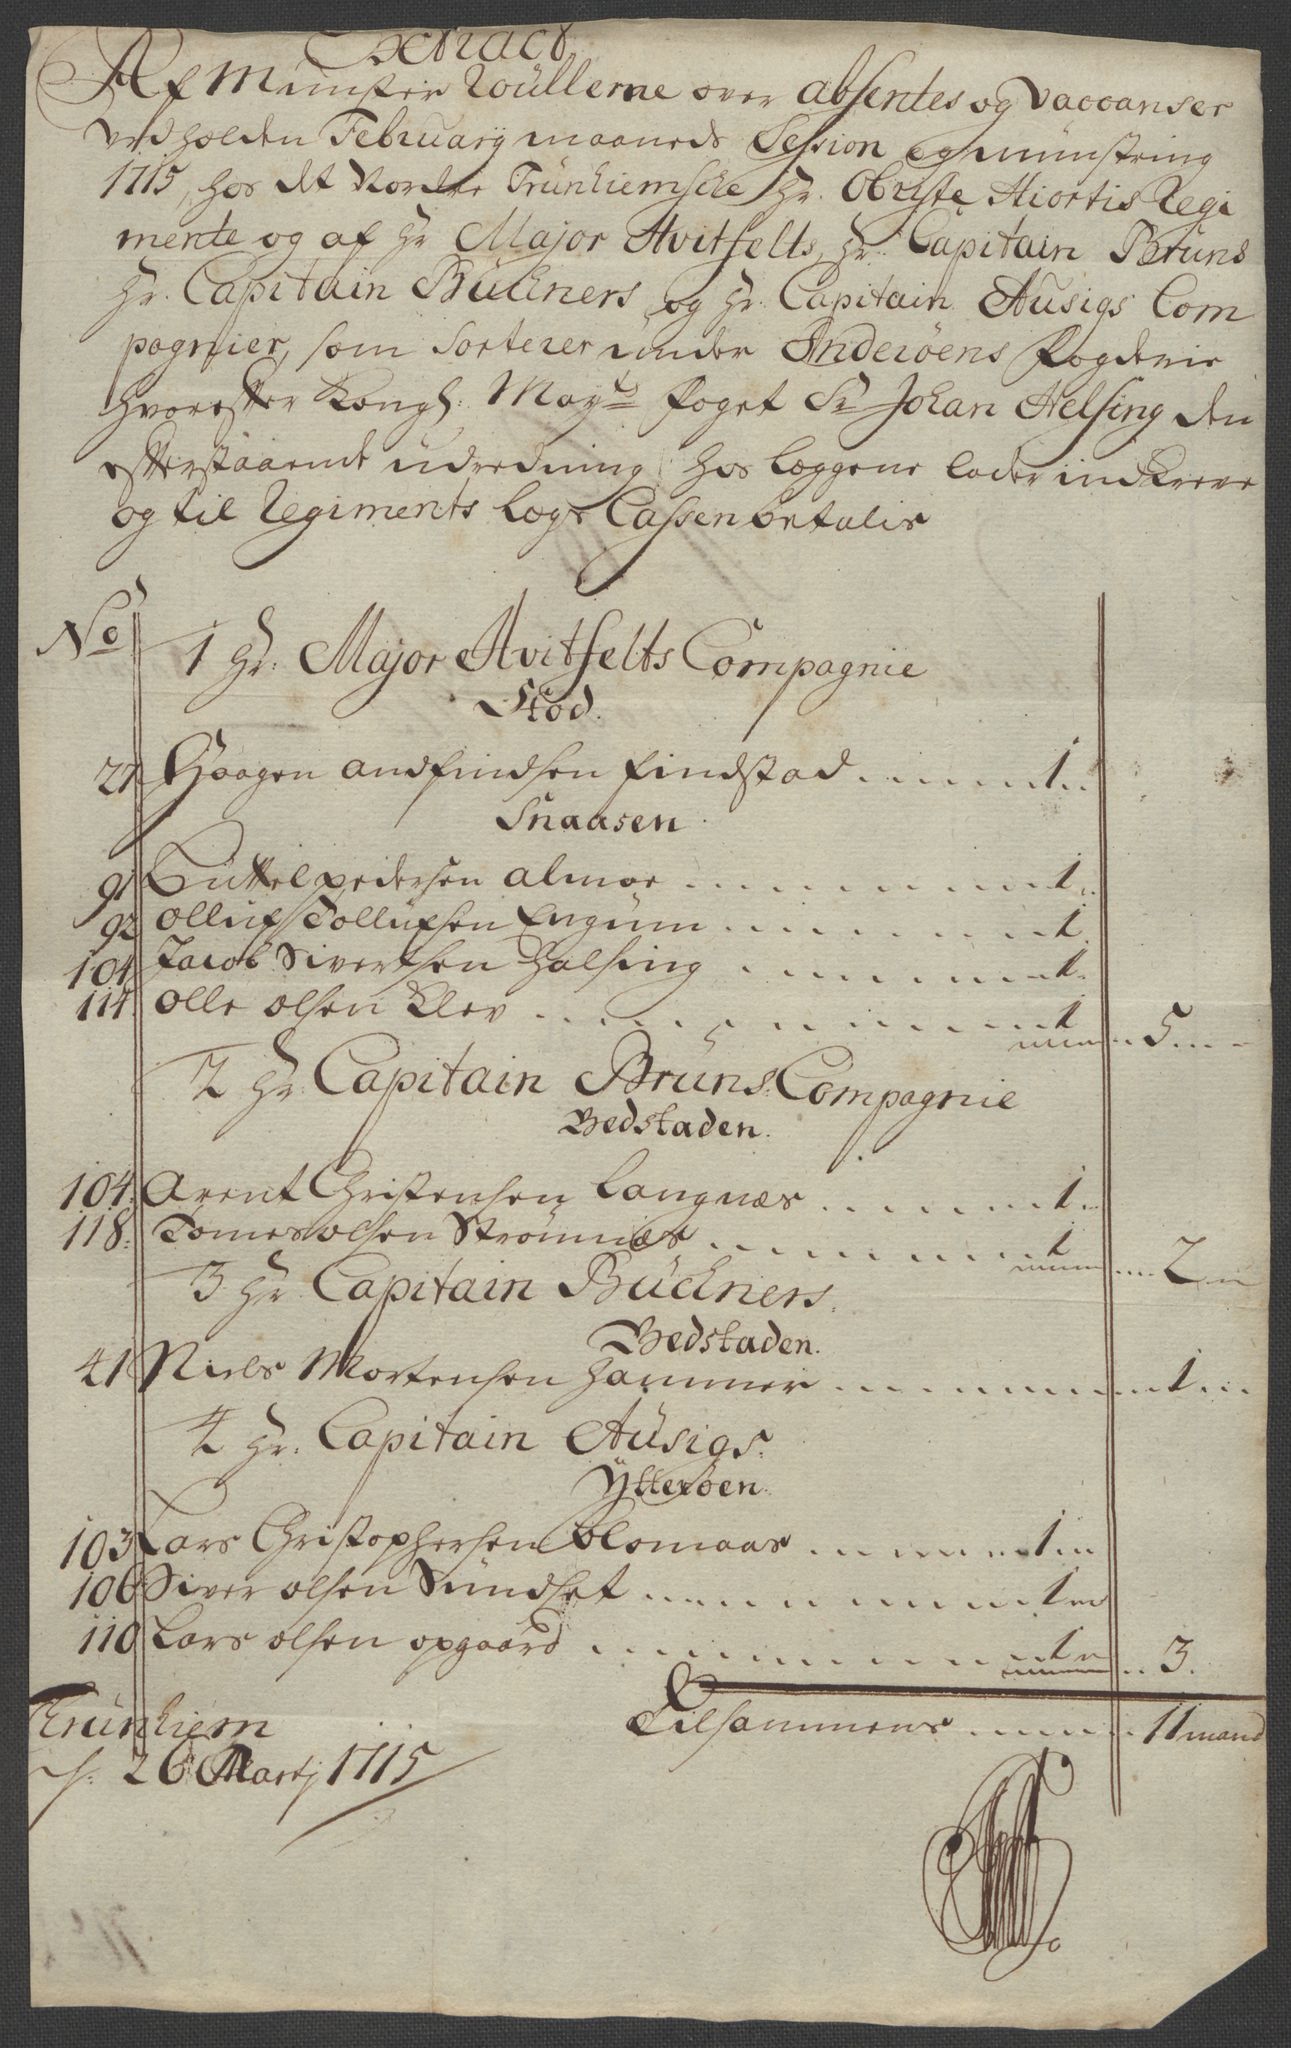 Extract
Af Mŭnster Roŭllerne over absentes og Vaccanser
ved holden Februarij maaneds Session og mŭnstring
1715, hos det Norden Trŭnhiemsche Hr. Obriste Hiortis Regi
mente og af Hr Major Hvitfelts, Hr. Capitain Brŭns
Hr. Capitain Büchners og Hr. Capitain Aŭsigs Com
pagnier, som Sorterer ŭnder Inderöens fogderie
hvorefter Kongl: May.ts foget Sr. Johan Helsing den
efterstaaende ŭdredning hos læggene lader indkræve
og til Regiments lægs Cassen betalis
No
1 Hr: Major Hvitfelts Compagnie
Stod.
27 Haagen andfindsen findstad 1
Snaasen
91 Kittel pedersen almoe 1
92 ollŭf Tollŭfsen Engŭm 1
104 Jacob Sivertsen Halsing 1
114 olle olsen Klev 1 5
2 Hr Capitain Brŭns Compagnie
Bedstaden.
104. Arent Christensen Langnæs 1
118. Tomes olsen Strömnæs 1 2
3 Hr Capitain Büchners.
Bedstaden.
41 Niels Mortensen Hammer 1
4 Hr. Capitain Aŭsigs.
Ytteröen.
103 Lars Christophersen Blomaas 1
106 Siver olsen Sŭndset 1
110 Lars olsen opgaard 1 3.
Tilsammens 11 mand
Trŭnhiem
d. 26 Martj 1715